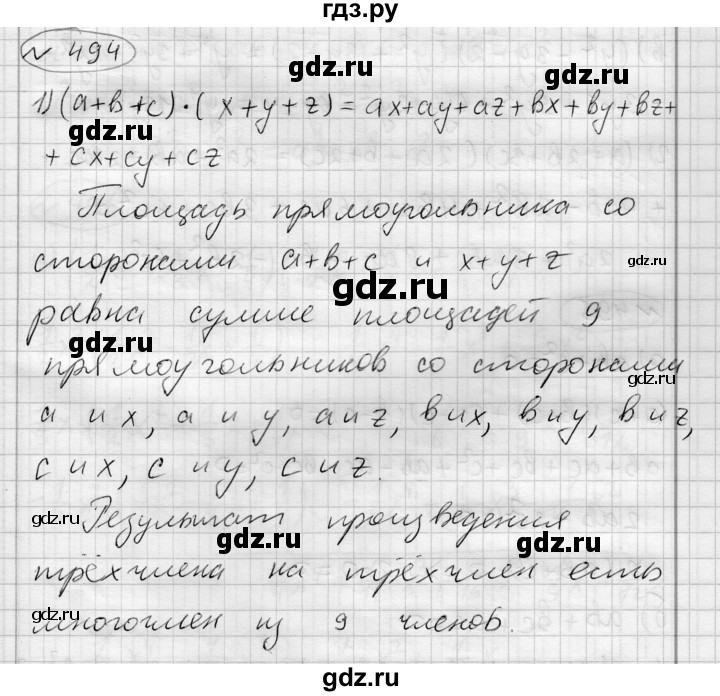 гдз.ру
№ 494
gdz.ru
gdz.ru
1) (a+b+c)·(x+y+z)=ax+ay+az+bx+by+bz+
+cx+cy+cz
gdz.ru
Площадь прямоугольника со
сторонами a+b+c и x+y+z
gdz.ru
gdz.ru
равна сумме площадей 9
gdz.ru
прямоугольников со сторонами
gdz.ru
a и x, a и y, a и z, b и x, b и y, b и z,
c и x, c и y, c и z.
gdz.ru
Результат произведения
gdz.ru
gdz.ru
трёхчлена на трёхчлен есть
gdz.ru
многочлен из 9 членов.
gdz.ru